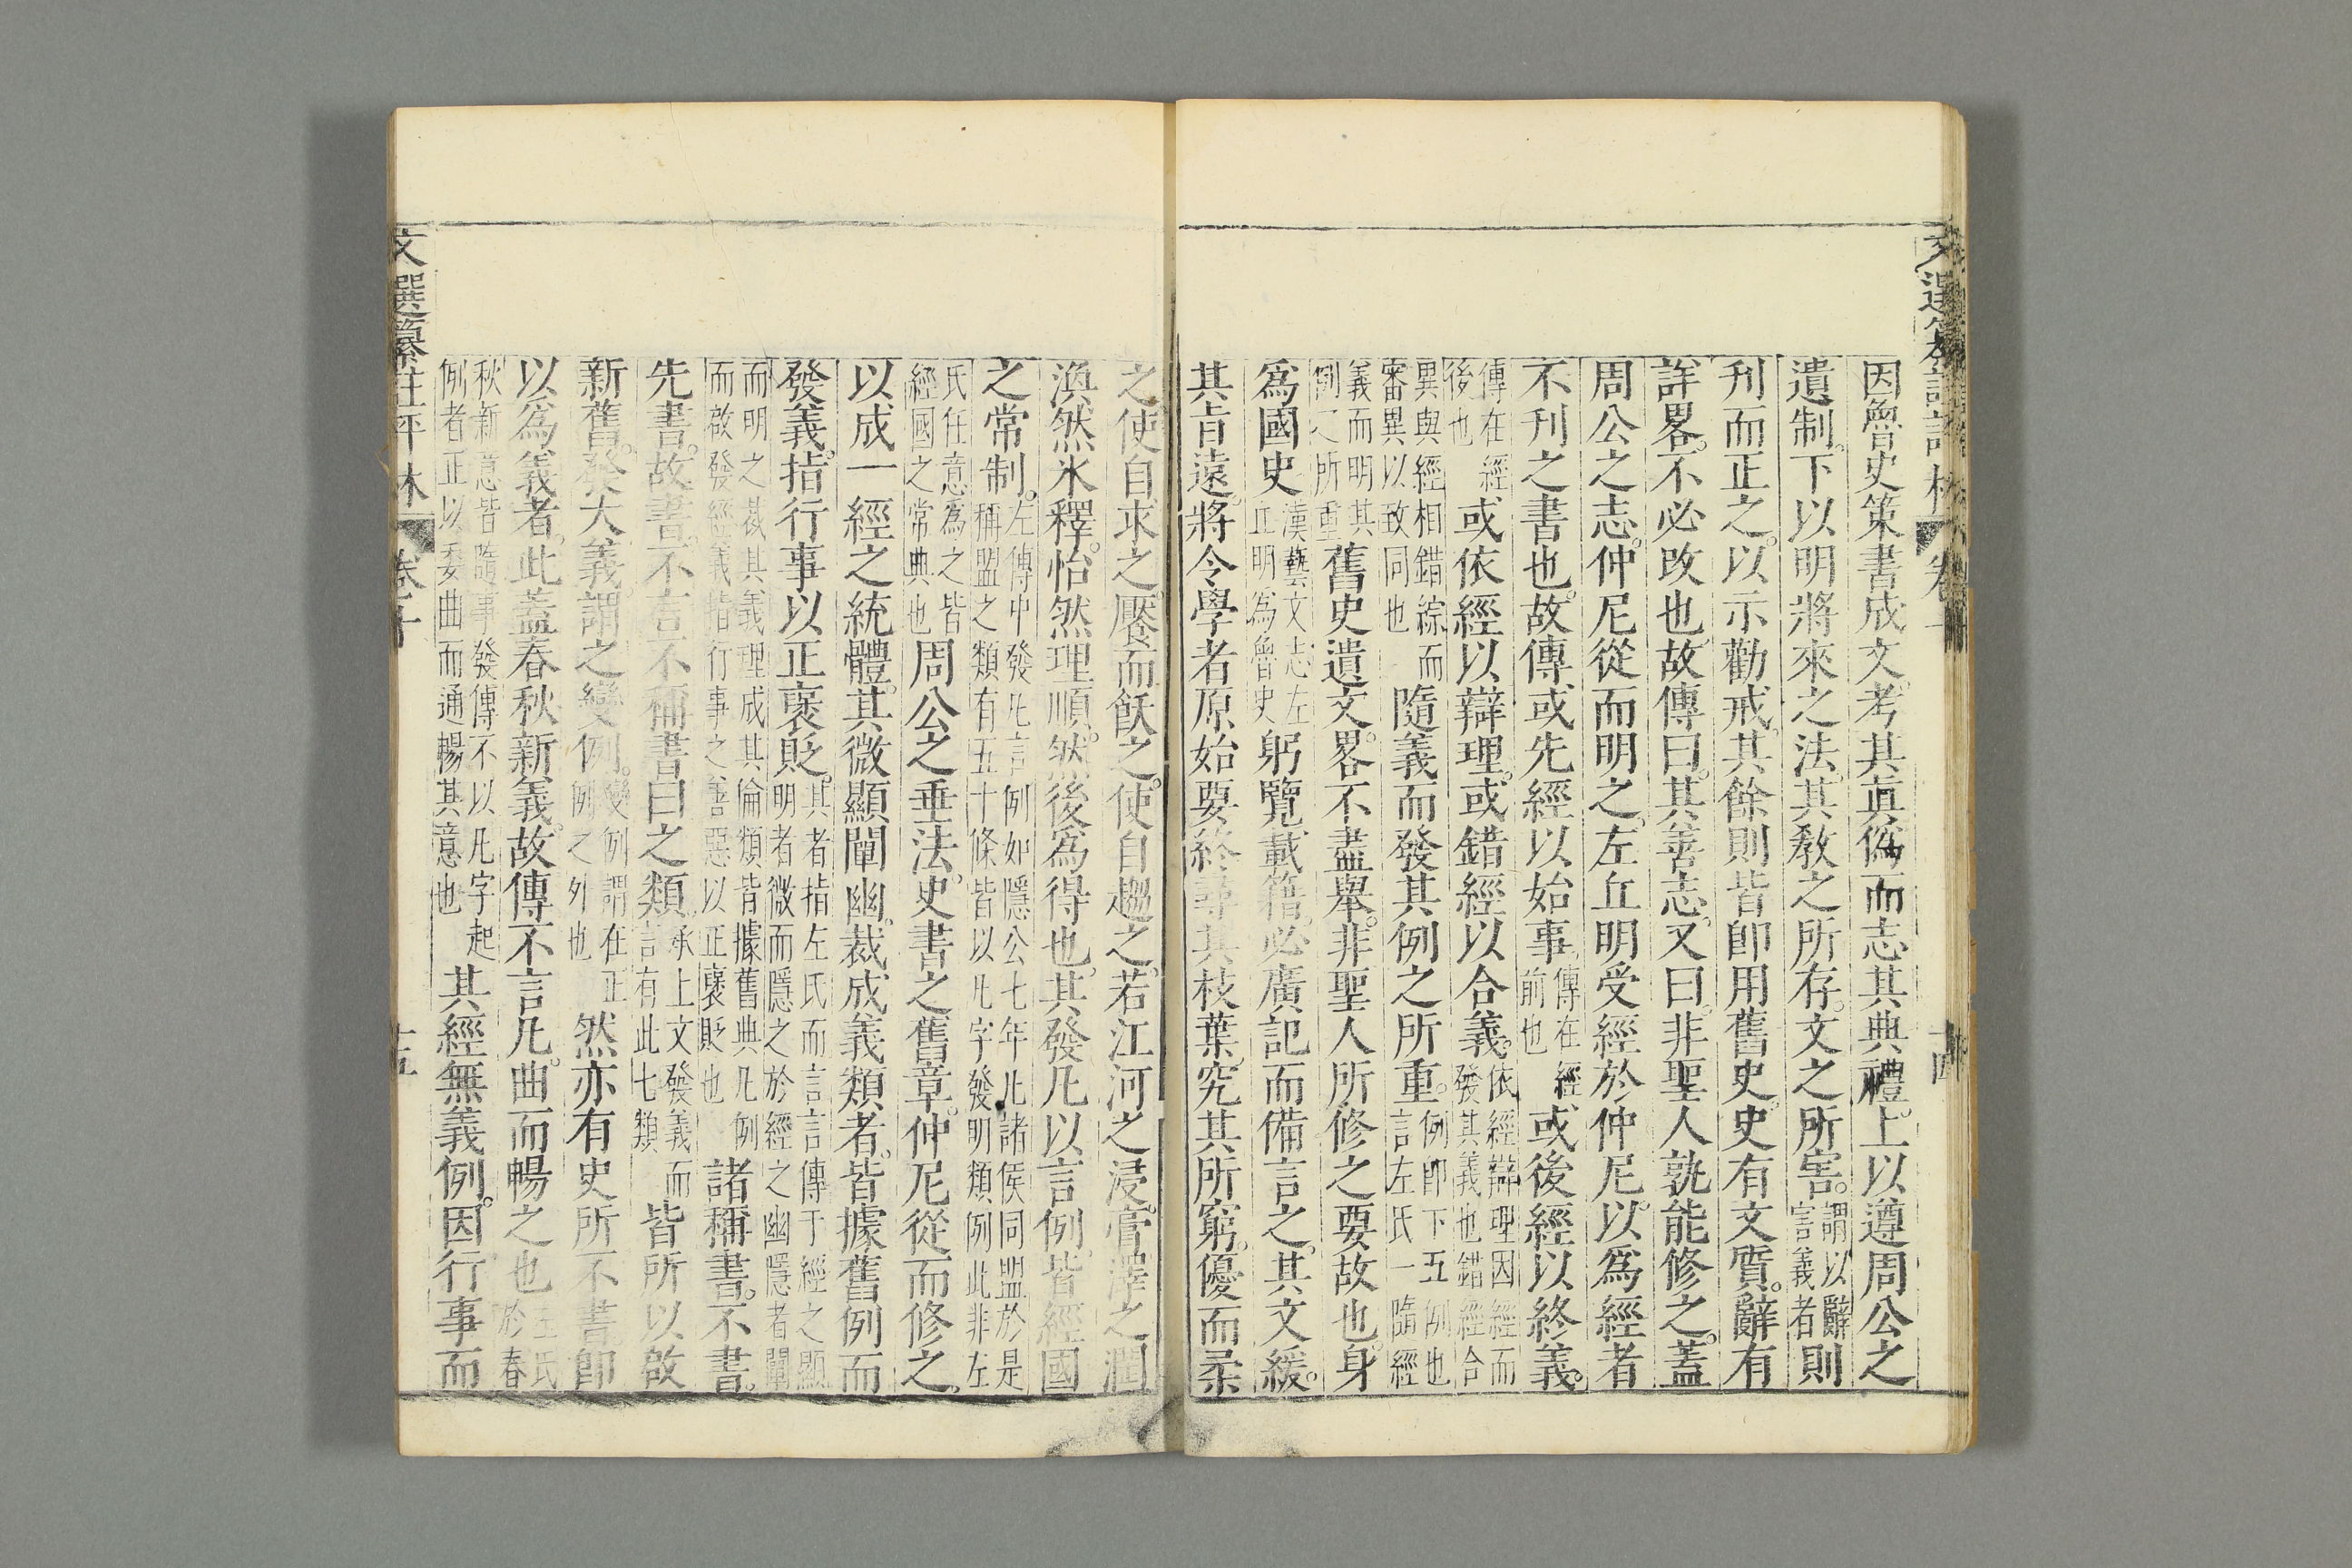 因魯史策書成文。考其眞僞而志其典禮。上以遵周公之
遺制。下以明將來之法。其敎之所存。文之所害。謂以辭害義者則
刊而正之。以示勸戒。其餘則皆卽用舊史。史有文質。辭有
詳畧。不必改也。故傳曰。其善志。又曰。非聖人孰能修之。蓋
周公之志。仲尼從而明之。左丘明受經於仲尼。以爲經者
不刊之書也。故傳或先經以始事。傳在經前也或後經以終義。
傳在經後也或依經以辯理。或錯經以合義。依經辯理因經而發其義也錯經合
異與經相錯綜而審異以致同也隨義而發其例之所重。例卽下五例也言左氏一隨經
義而明其例之所重舊史遺文。畧不盡舉。非聖人所修之要故也。身
爲國史漢藝文志左丘明爲魯史躬覽載籍。必廣記而備言之。其文緩。
其旨遠。將令學者原始要終尋其枝葉。究其所窮。優而柔
之。使自求之。饜而飫之。使自趨之。若江河之浸。膏澤之潤
渙然氷釋。怡然理順。然後爲得也。其發凡以言例。皆經國
之常制。左傳中發凡言例如隱公七年凡諸侯同盟於是稱盟之類有五十條皆以凡字發明類例此非左
氏任意爲之皆經國之常典也周公之垂法。史書之舊章。仲尼從而修之。
以成一經之統體。其微顯闡幽。裁成義類者。皆據舊例而
發義。指行事以正褒貶。其者指左氏而言言傳于經之顯明者微而隱之於經之幽隱者闡
而明之裁其義理成其倫類皆據舊典凡例而啟發經義指行事之善惡以正褒貶也諸稱書。不書。
先書。故書。不言不稱書曰之類。承上文發義而言有此七類皆所以啟
新舊。發大義。謂之變例。變例謂在正例之外也然亦有史所不書。卽
以爲義者。此蓋春秋新義。故傳不言凡。曲而暢之也左氏於春
秋新意皆隨事發傳不以凡字起例者正以委曲而通暢其意也其經無義例。因行事而
文選纂註評林 卷十 十五